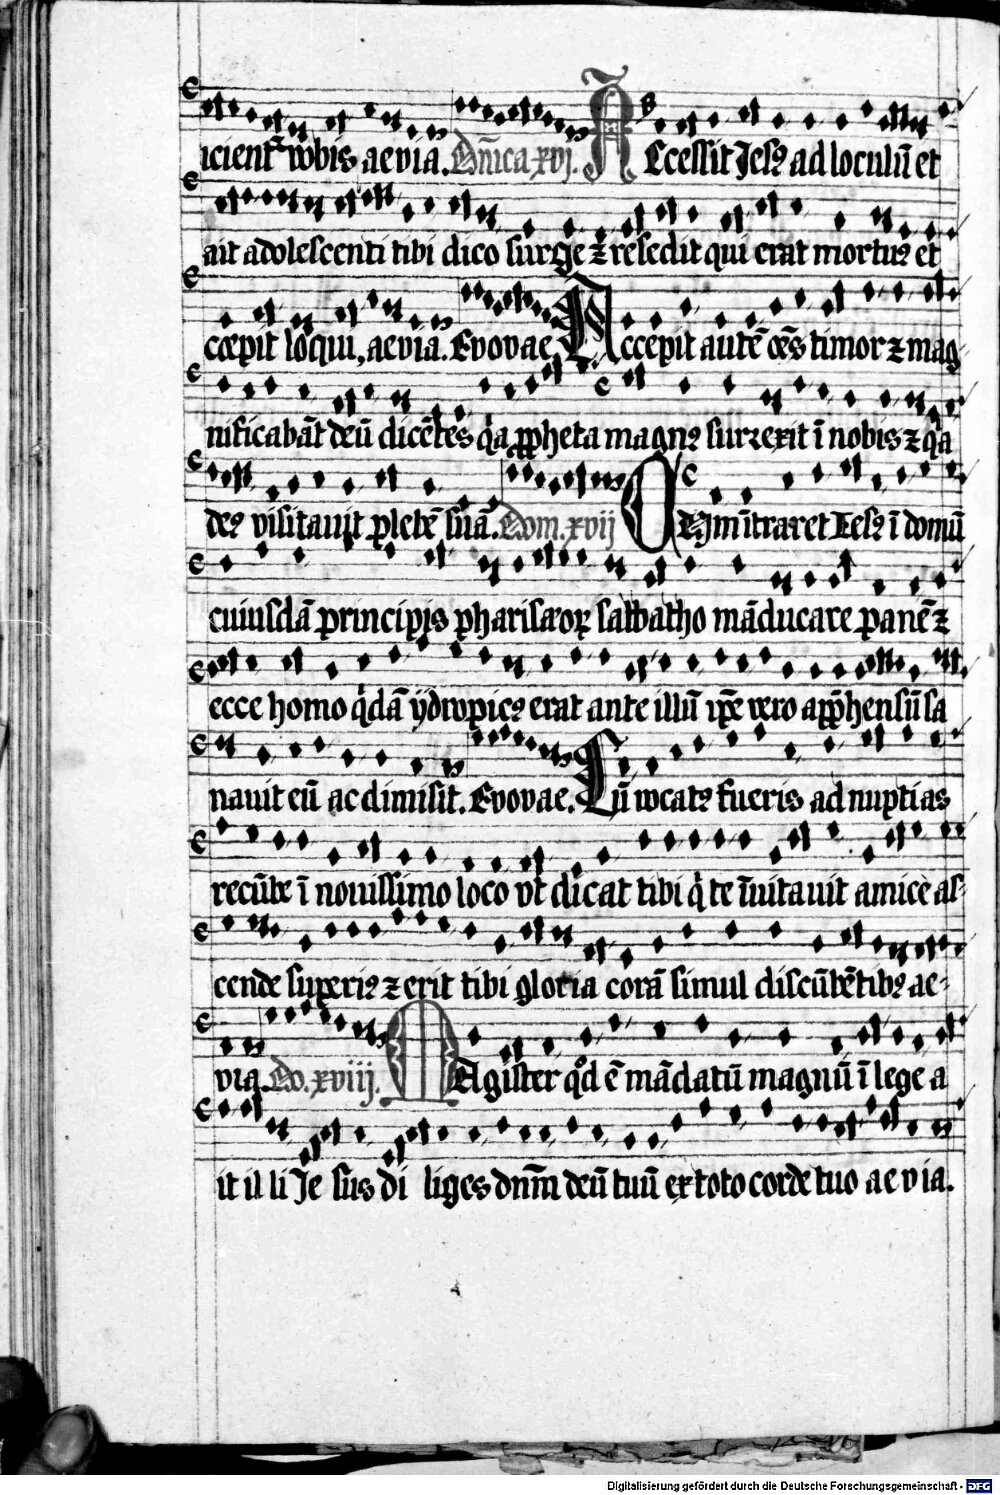 icient᷑ vobis aevia. Dn̄ica xvj. Accessit Jesꝰ ad loculū et
ait adolescenti tibi dico surge ⁊ resedit qui erat mortuꝰ et
cœpit loqui, aevia. Evovae. Accepit autē oēs timor ⁊ mag
nificabāt deū dicētes qͥa ꝓpheta magnꝰ surrexit ī nobis ⁊ qͥa
deꝰ visitavit plebē suā. Dom. xvij Cym ītraret Iesꝰ ī domū
cuiusdā principis pharisæoꝝ sabbatho māducare panē ⁊
ecce homo qͥdā ydropicꝰ erat ante illū ip̄e vero app̄hensū sa
navit eū ac dimisit. Evovae. Cū vocatꝰ fueris ad nuptias
recūbe ī novissimo loco vt dicat tibi qͥ te īvitavit amice as-
cende superiꝰ ⁊ erit tibi gloria corā simul discūbētibꝰ ae-
via. Do. xviij. Magister qͦd ē mādatū magnū ī lege a
it illi Jesus diliges dnm̄ deū tuū ex toto corde tuo aevia.
Digitalisierung gefördert durch die Deutsche Forschungsgemeinschaft - DFG